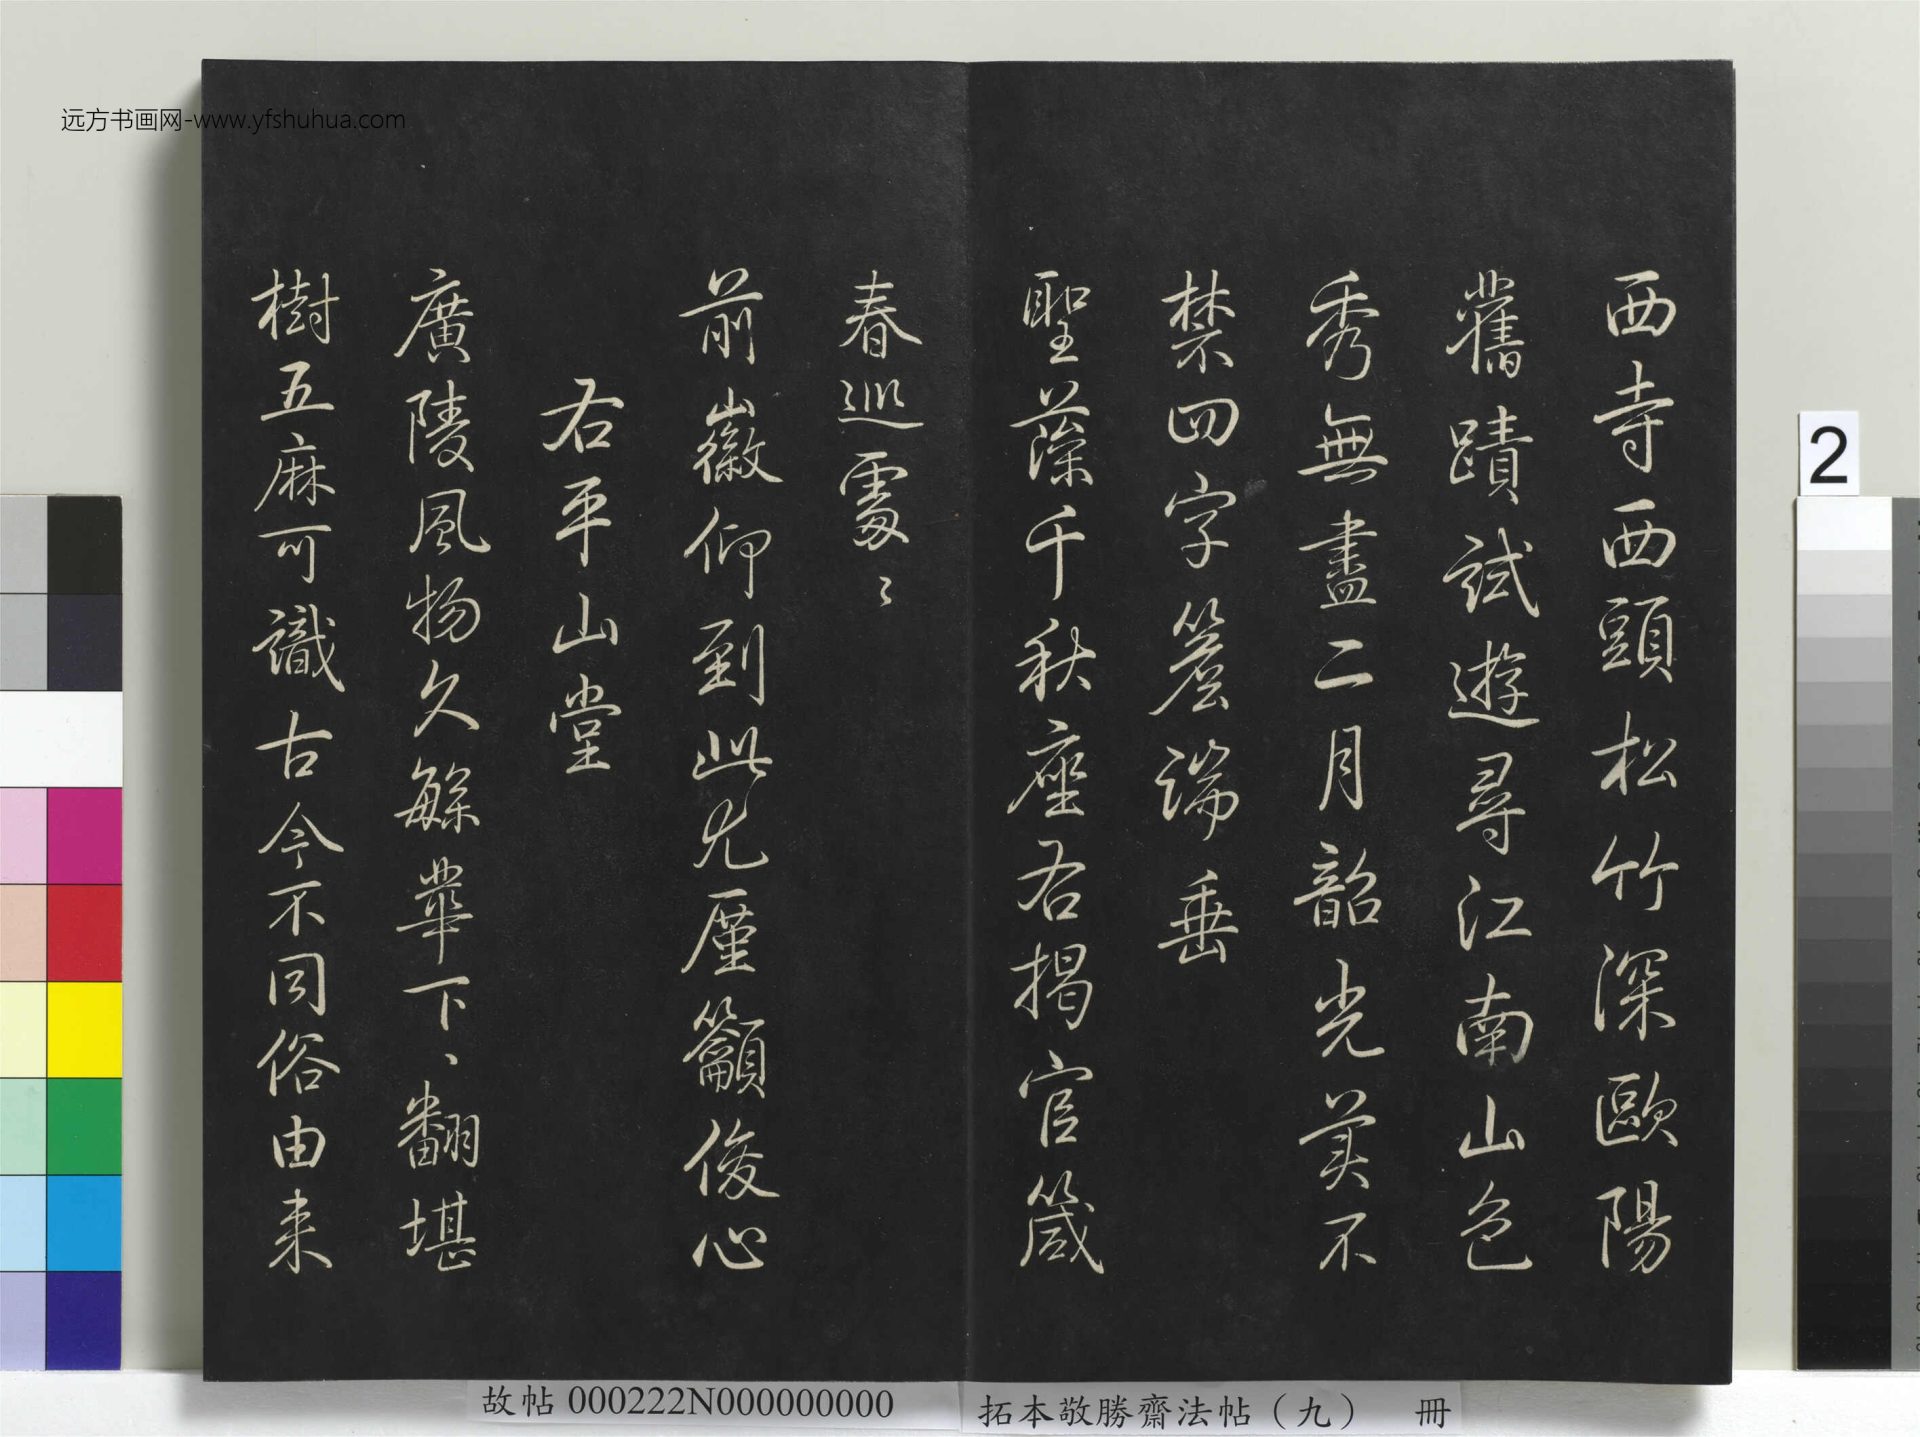 西寺西頭松竹深歐陽
舊蹟試遊尋江南山色
秀無盡二月韶光美不
禁四字簷端垂
聖藻千秋座右揭官箴
春巡處〻
前徽仰到此尤廑籲俊心
右平山堂
廣陵風物久繇華下〻翻堪
樹五麻可識古今不同俗由来
远方书画网-www.yfshuhua.com
2
故帖 000222N000000000
拓本敬勝齋法帖（九） 冊